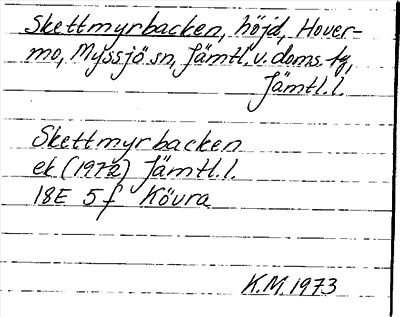 Skettmyrbacken, höjd, Hover-
mo, Myssjö sn, Jämtl.v.doms.tg,
Jämtl.l.
Skettmyrbacken
ek (1972) Jämtl.l.
18E 5f Kövra
K.M.1973